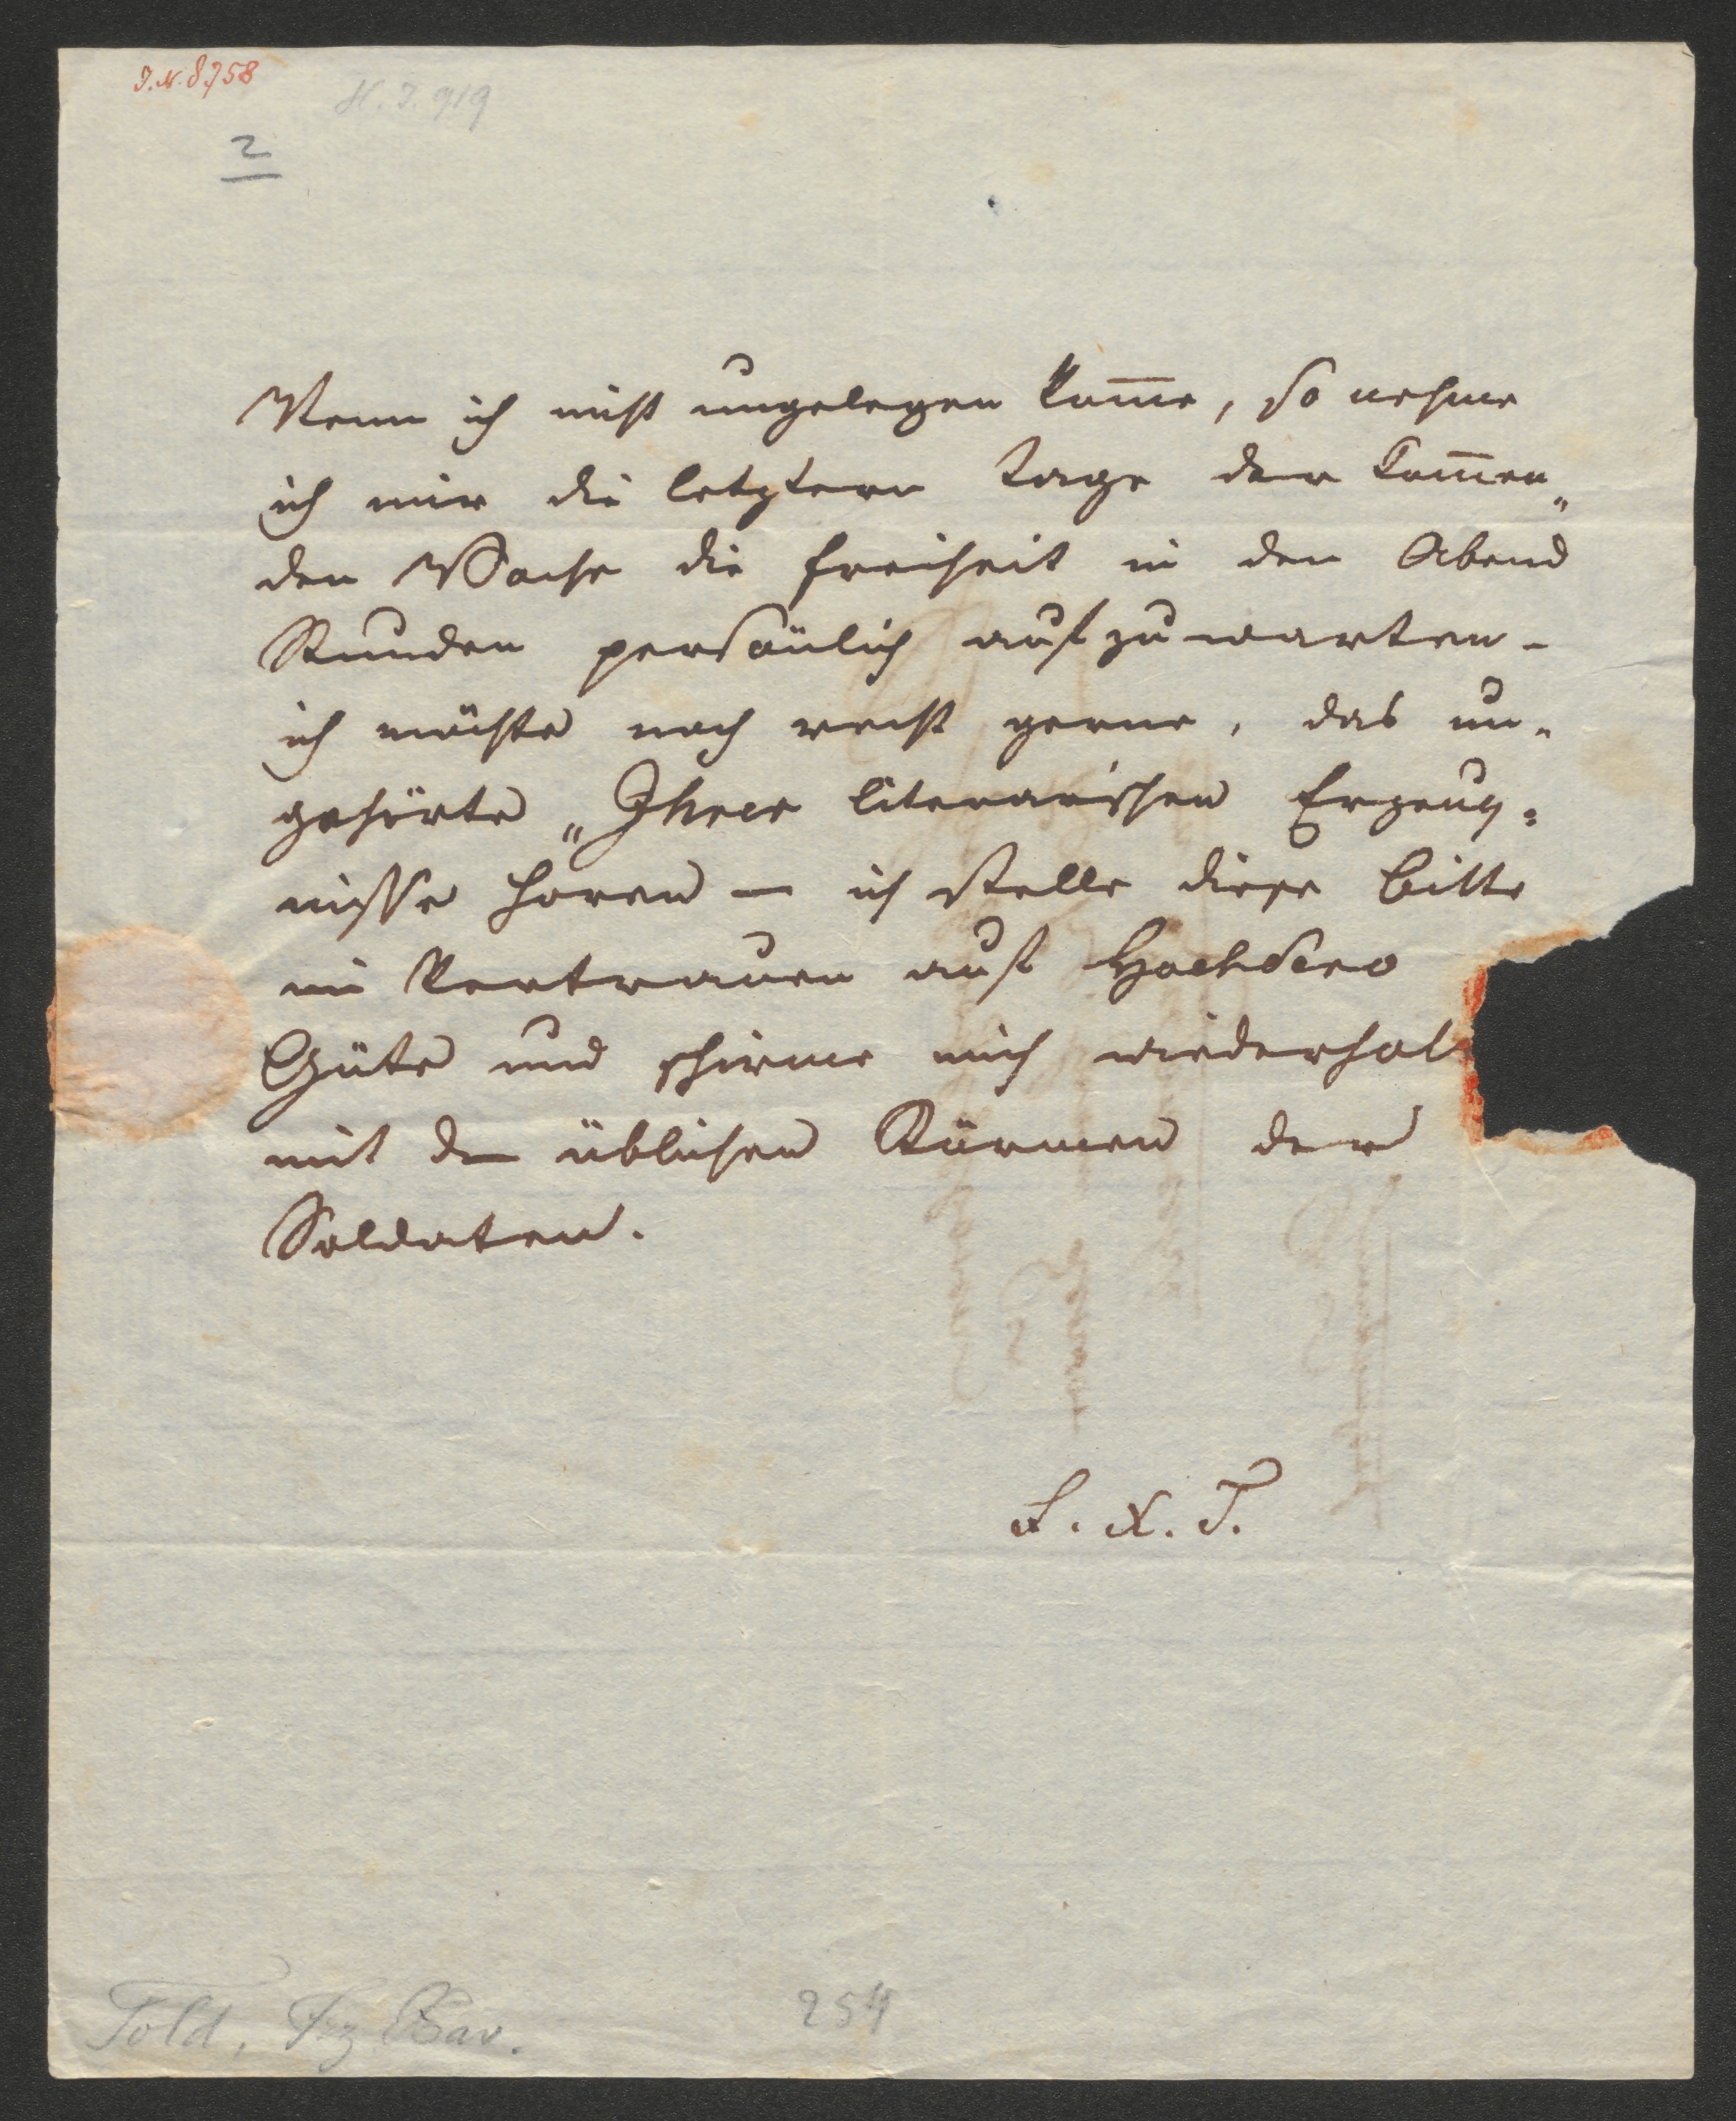 J.N. 8758
H.I. 919
2
Wenn ich nicht ungelegen kom̅e, so nehme
ich mir die letztern Tage der kom̅en„
den Woche die Freiheit in den Abend
Stunden persönlich aufzuwarten -
ich möchte noch recht gerne, das un-
gehörte „Ihrer literarischen Erzeug=
nisse hören — ich stelle diese Bitte
im Vertrauen auf Hochdero
Güte und schirme mich wiederhol
mit den üblichen Stürmen der
Soldaten.
F. X. T.
Told, Fz Xav.
254